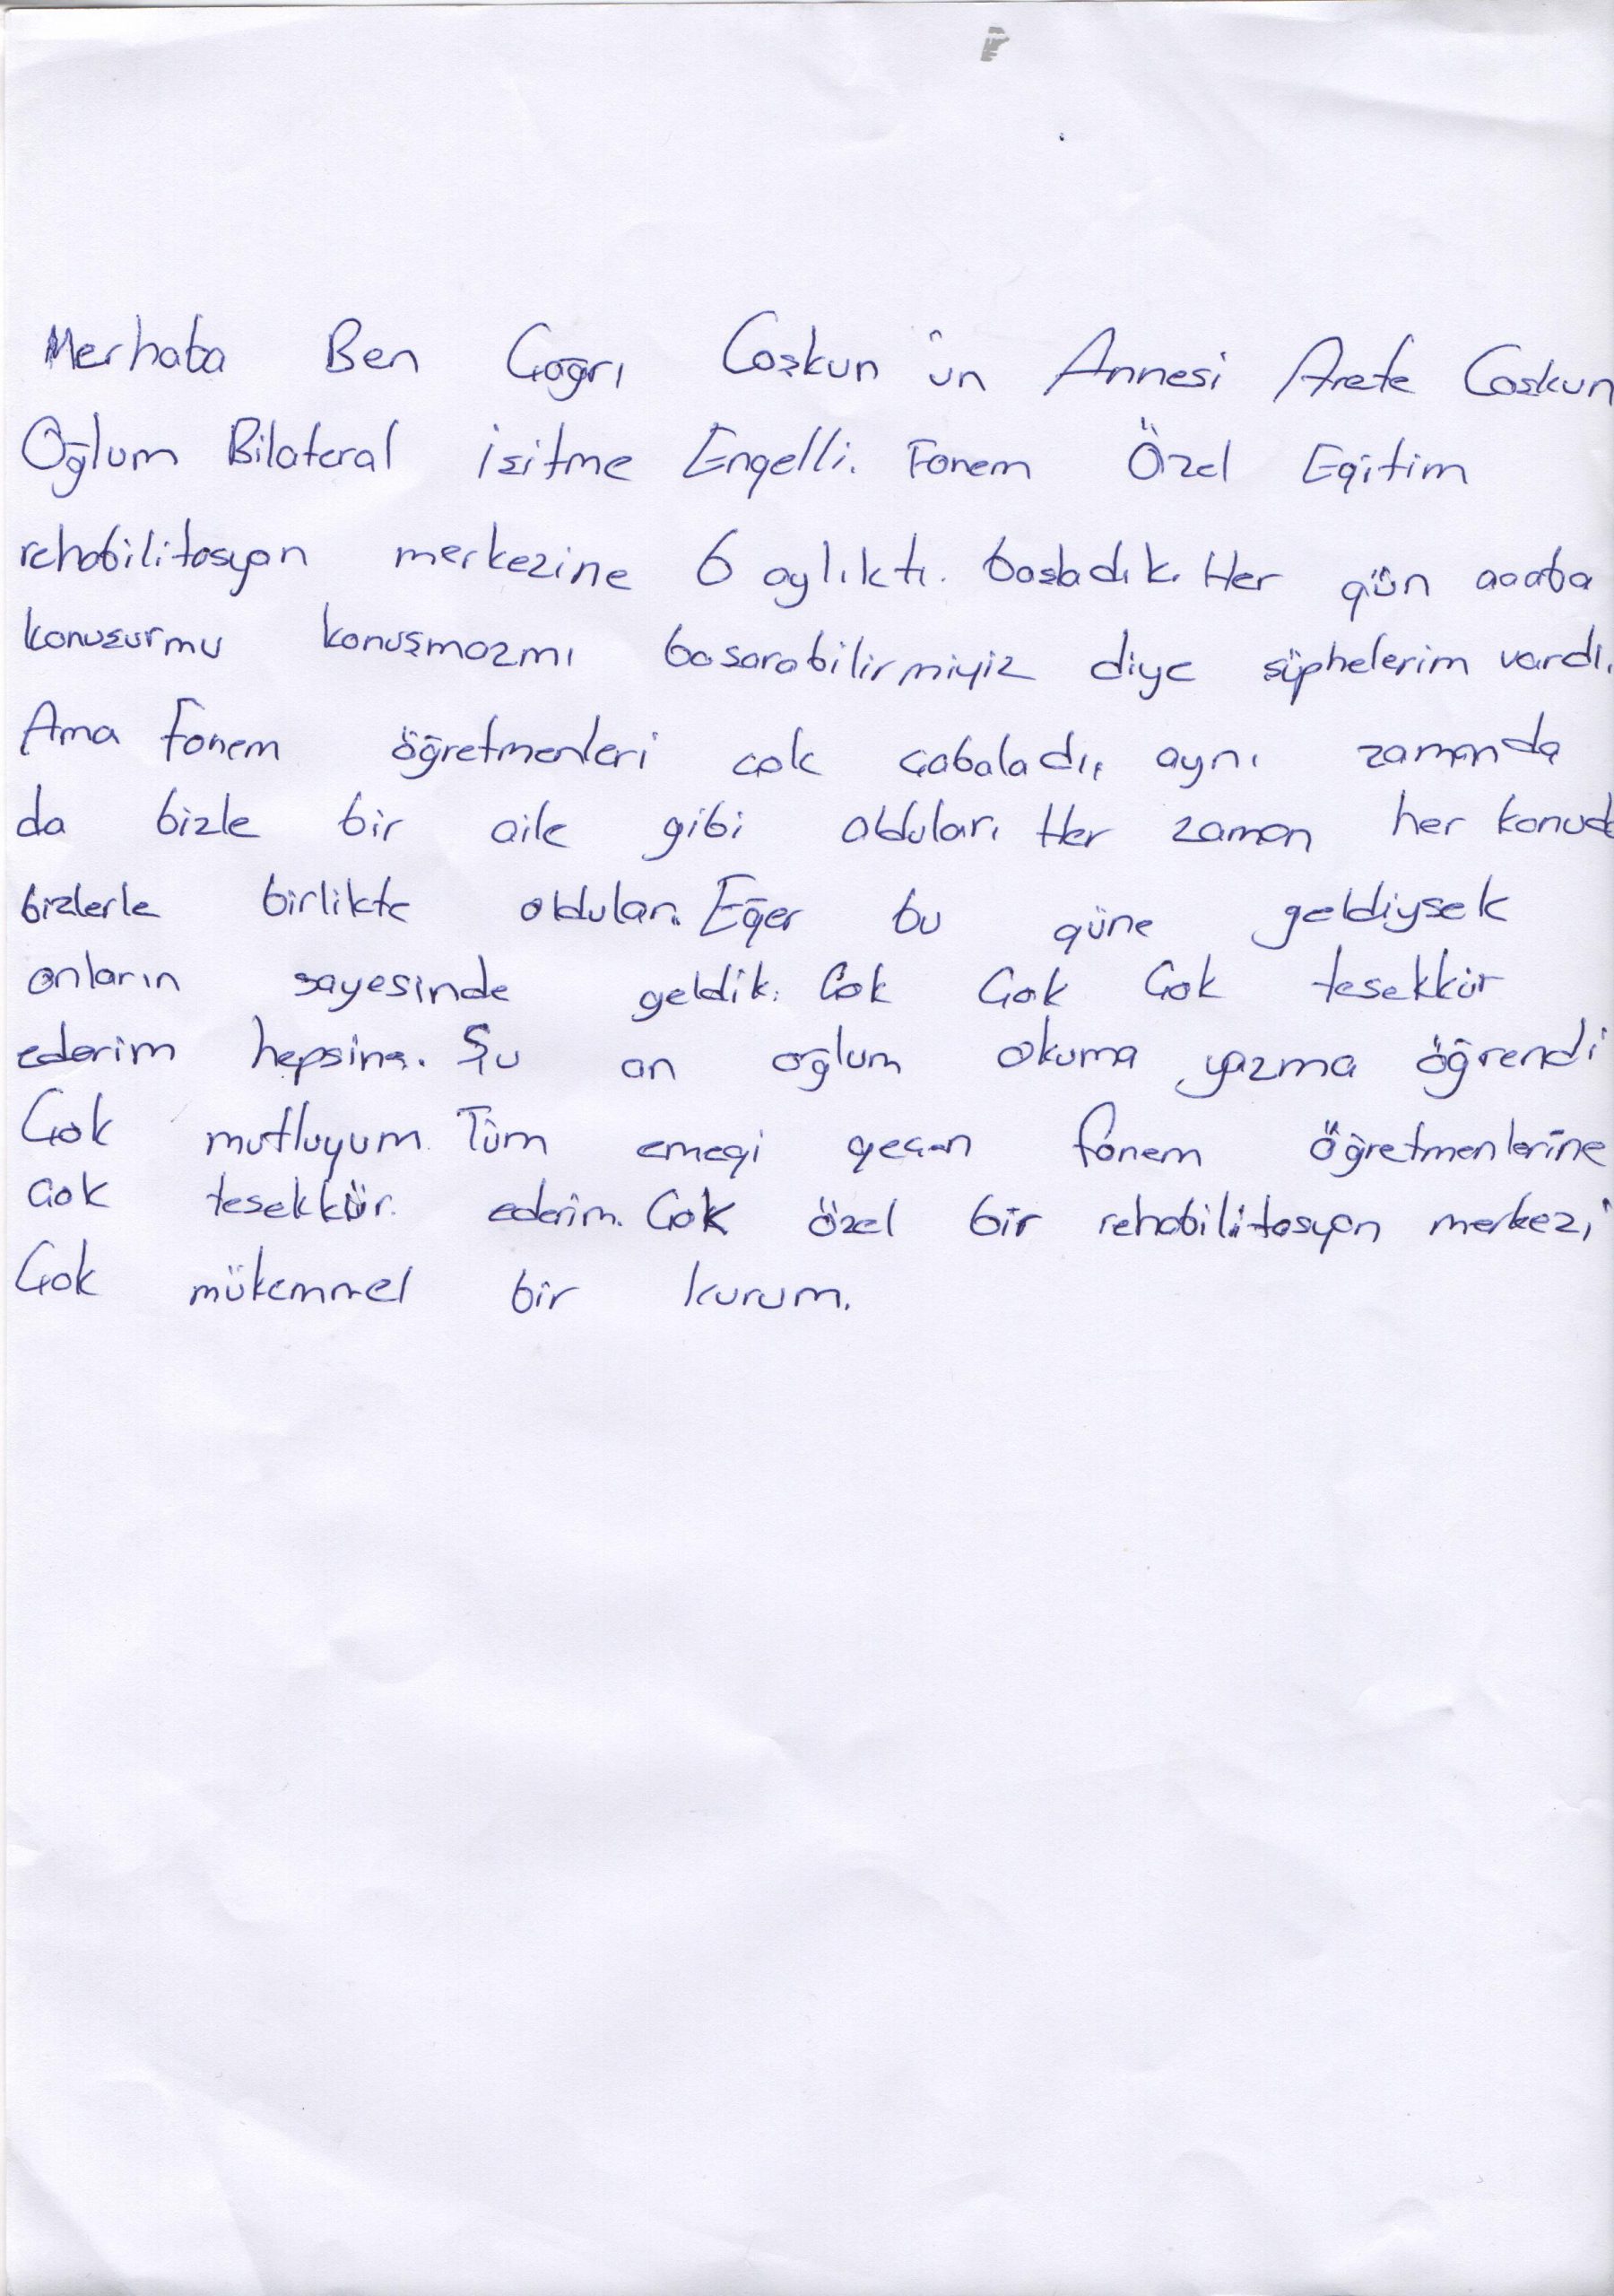 Merhaba Ben Çağrı Coşkun'un Annesi Arefe Coşkun
Oğlum Bilateral İşitme Engelli. Fonem Özel Eğitim
rehabilitasyon merkezine 6 aylıktı. başladık. Her gün acaba
konuşurmu konuşmazmı başarabilirmiyiz diye şüphelerim vardı.
Ama Fonem öğretmenleri çok çabaladı, aynı zamanda
da bizle bir aile gibi oldular. Her zaman her konuda
bizlerle birlikte oldular. Eğer bu güne geldiysek
onların sayesinde geldik. Çok Çok Çok teşekkür
ederim hepsine. Şu an oğlum okuma yazma öğrendi
Çok mutluyum. Tüm emeği geçen fonem öğretmenlerine
çok teşekkür. ederim. Çok özel bir rehabilitasyon merkezi
Çok mükemmel bir kurum.